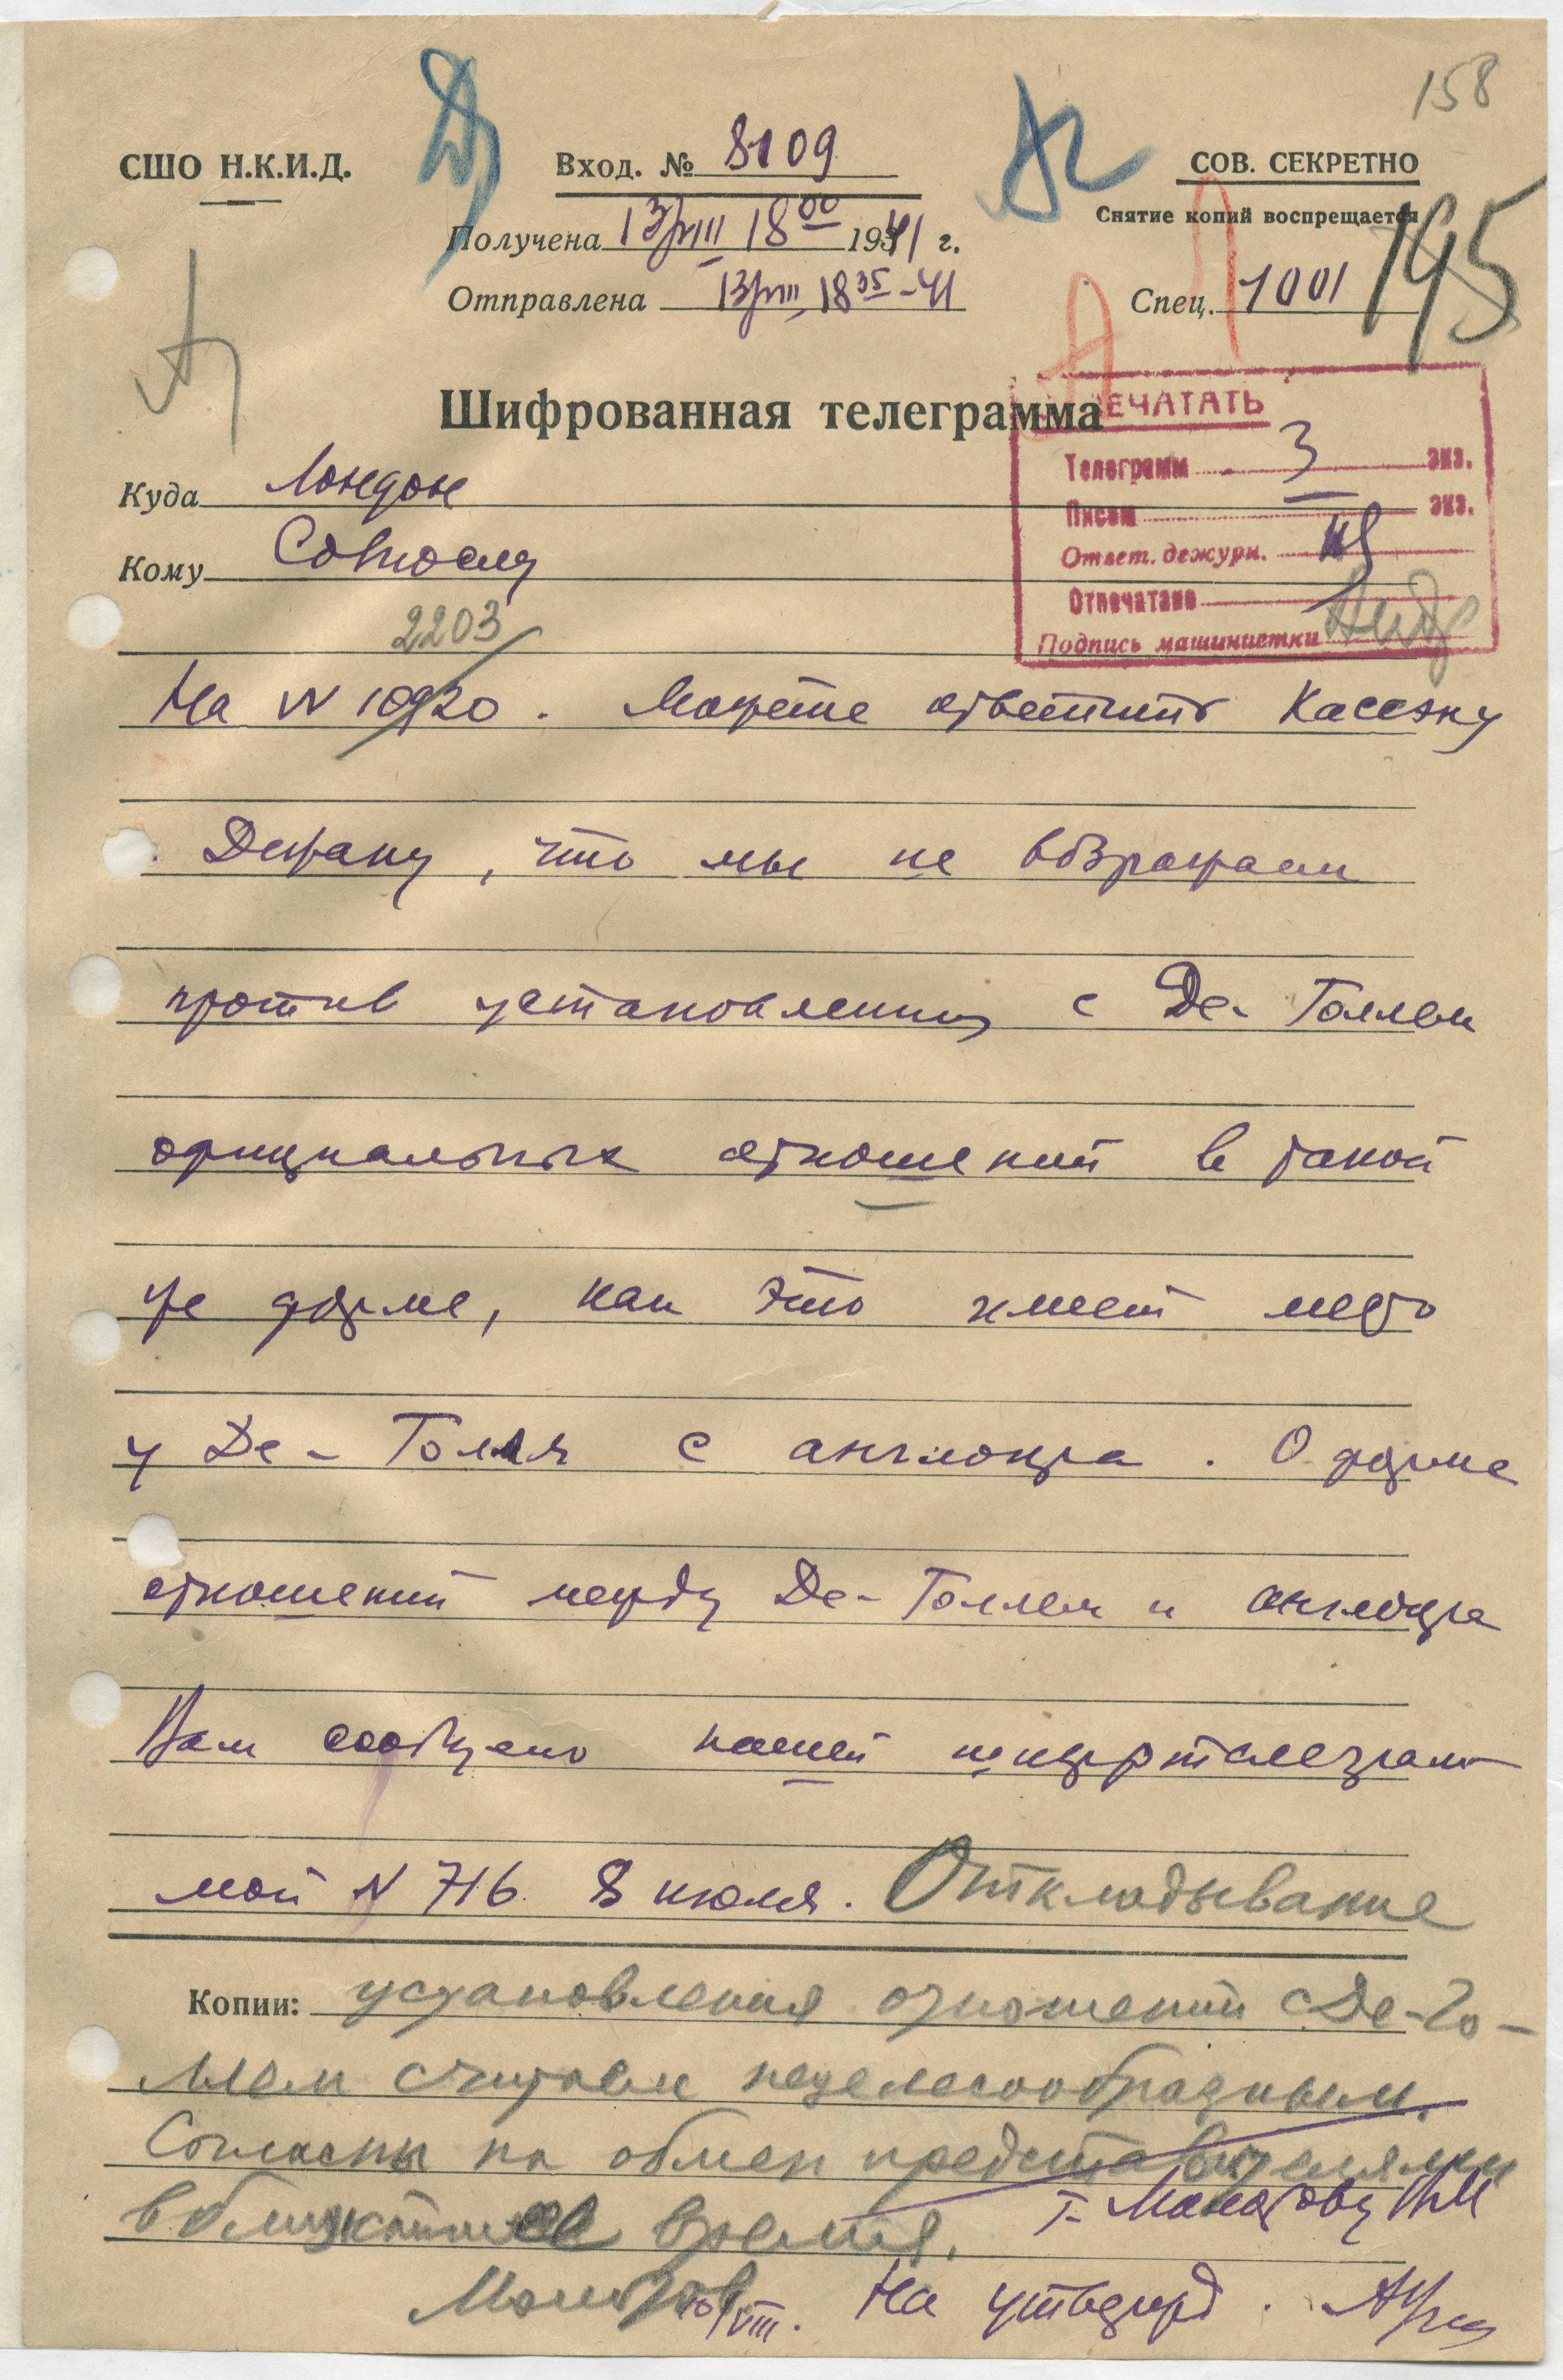 158
СШО Н.К.И.Д.
Вход. № 8109
СОВ. СЕКРЕТНО
Снятие копий воспрещается
Получена 13/VIII 18 00 1941 г.
Отправлена 13/VIII, 18 35 -41
Спец. 1001
195
Шифрованная телеграмма
ПЕЧАТАТЬ
Телеграмм 3 экз.
Писем экз.
Ответ. дежурн.
Отпечатано
Подпись машинистки
Куда Лондон
Кому Совпослу
2203
На № 10920. Можете ответить Кассэну
Дежану, что мы не возражаем
против установления с Де-Голлем
официальных отношений в такой
же форме, как это имеет место
у Де-Голля с англопра. О форме
отношений между Де-Голлем и англопра
Вам сообщено нашей шифртелеграм-
мой № 716 8 июля. Откладывание
Копии: установления отношений с Де-Го-
лем считаем нецелесообразным.
Согласны на обмен представителями
в ближайшее время.
т. Молотову В.М.
Молотов
10/VIII. На утвержд.